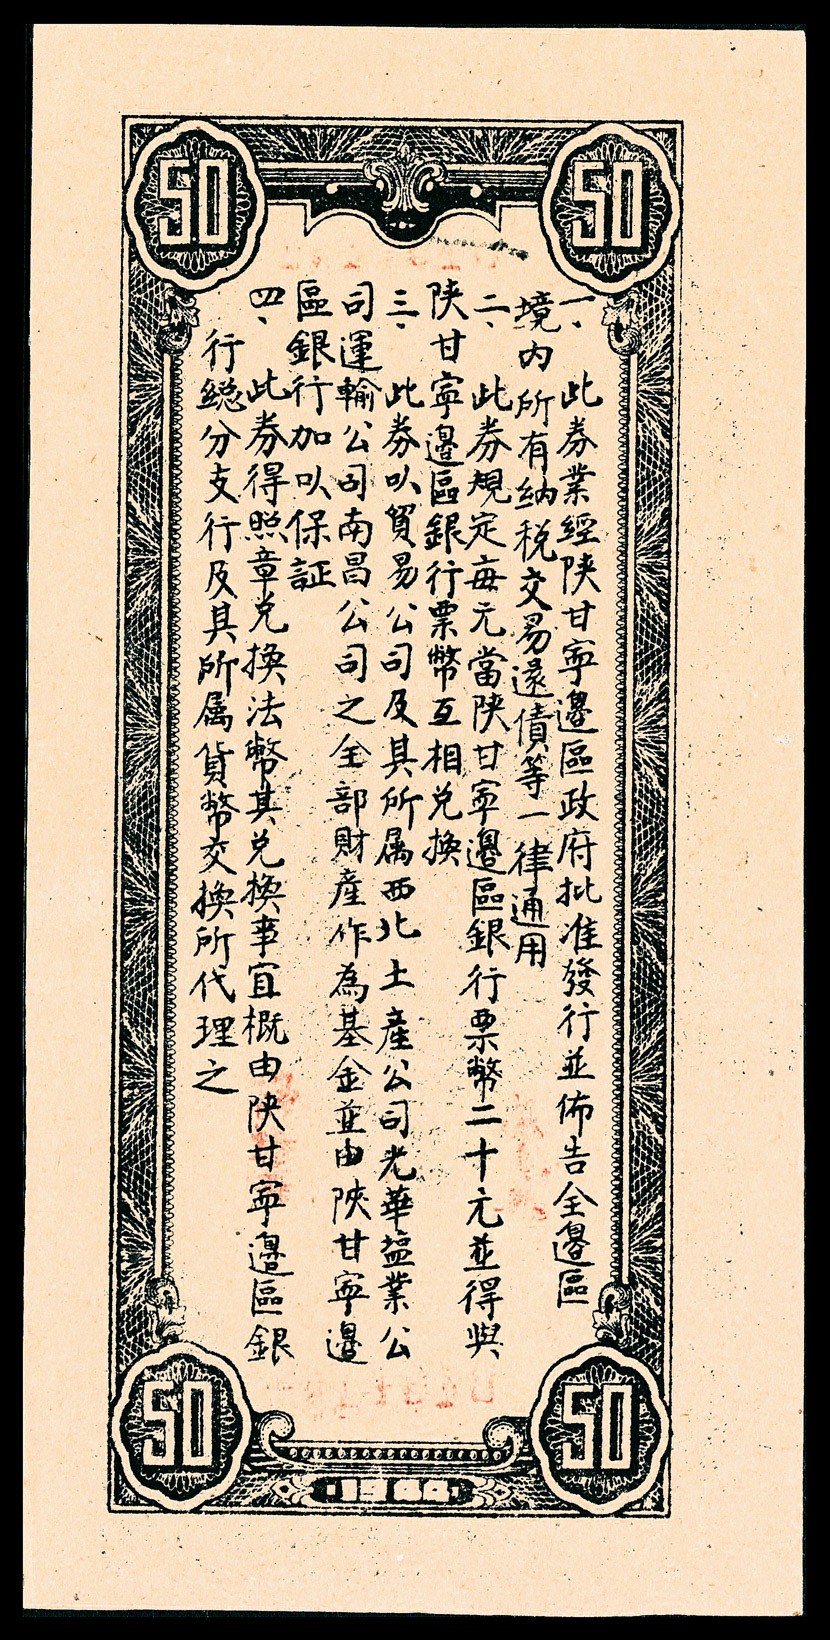 50
50
一、此券業經陕甘寧邊區政府批准發行並佈告全邊區
境内所有纳税交易還債等一律通用
二、此券規定每元當陕甘寧邊區銀行票幣二十元並得與
陕甘寧邊區銀行票幣互相兑換
三、此券以貿易公司及其所属西北土產公司光華盐業公
司運輸公司南昌公司之全部財產作為基金並由陕甘寧邊
區銀行加以保証
四、此券得照章兑換法幣其兑換事宜概由陕甘寧邊區銀
行総分支行及其所属貨幣交換所代理之
50
50
1944